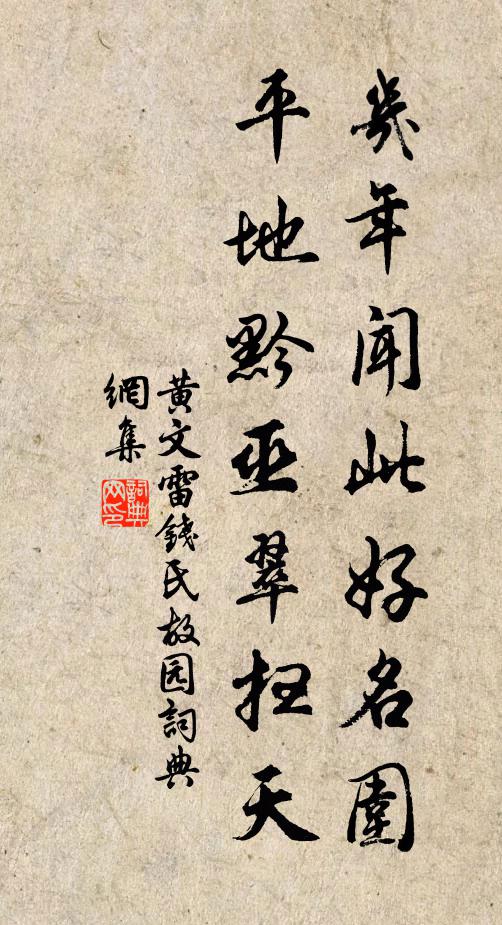 幾年聞此好名園
平地黔巫翠扫天
黄文雷錢氏故园詞典
網集
詞典
网印